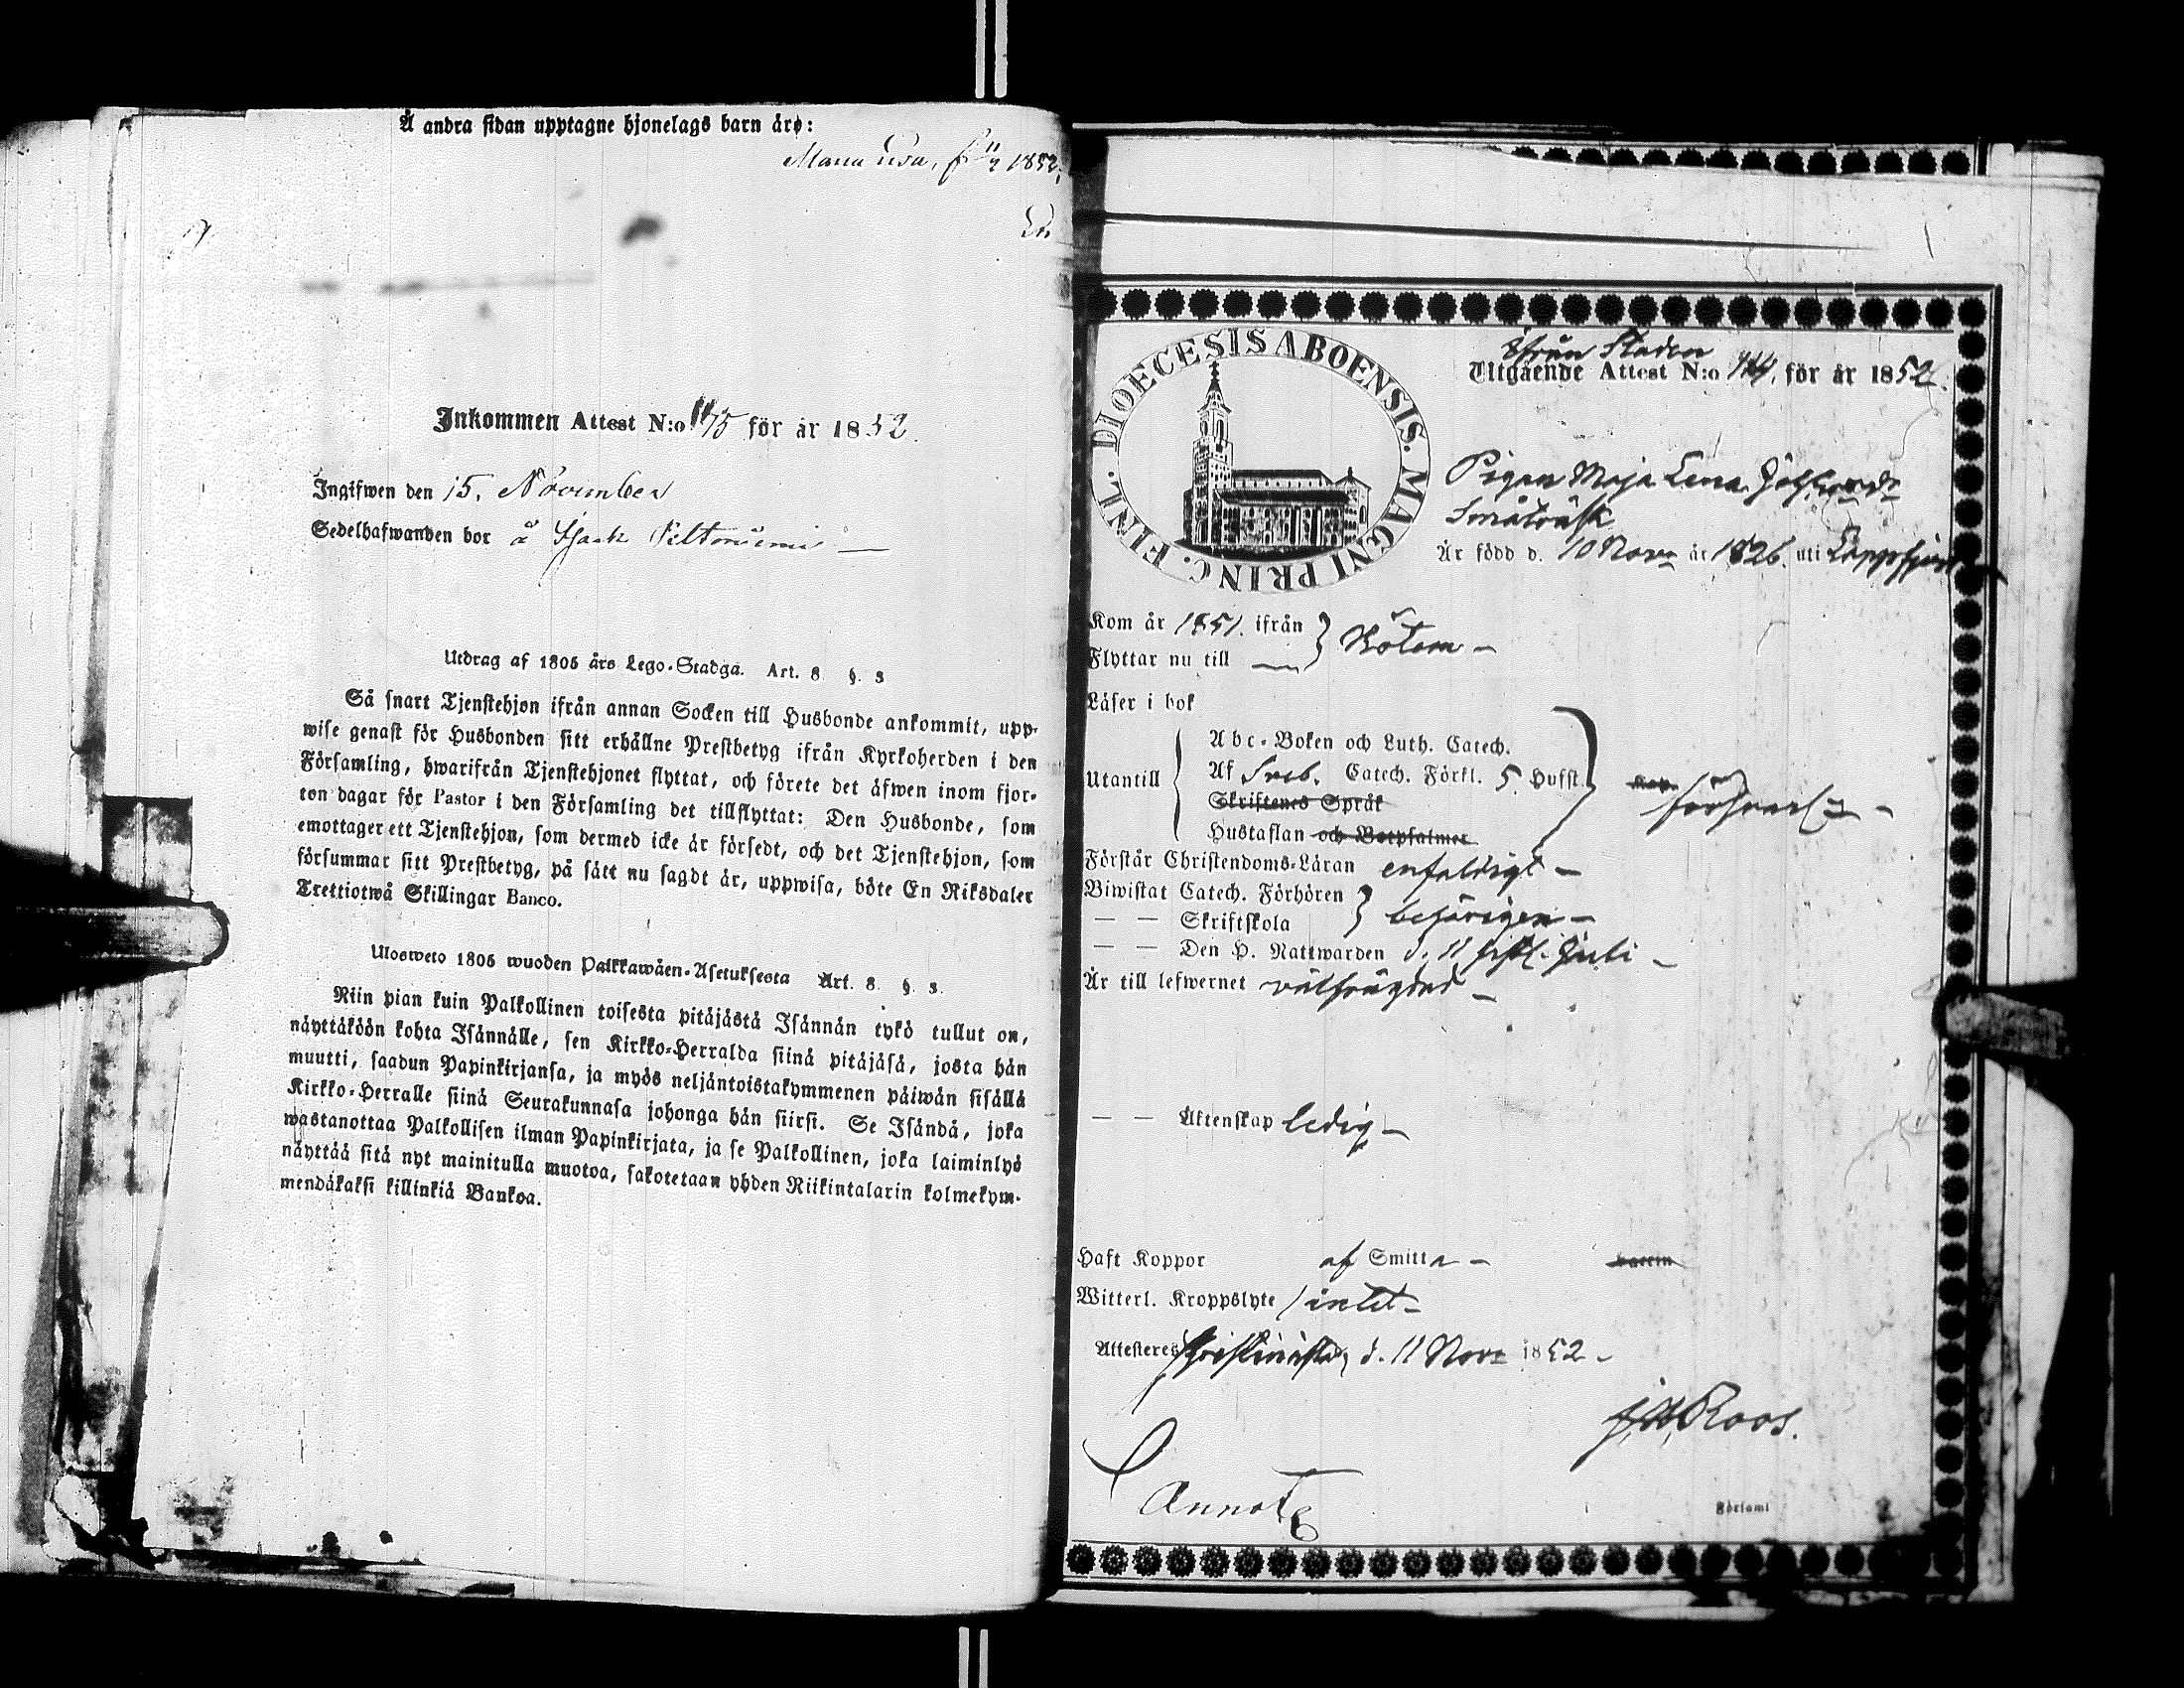 Å andra sidan upptagne hjonelags barn äro:
Maria Lisa, f. 11/7 1852,
Inkommen Attest N:o 175 för år 1852.
Ingifwen den 15. November
Sedelhafwanden bor å
Utdrag af 1805 års Lego-Stadga. Art. 8 §. 3
Så snart Tjenstehjon ifrån annan Socken till Husbonde ankommit, upp-
wise genast för Husbonden sitt erhållne Prestbetyg ifrån Kyrkoherden i den
Församling, hwarifrån Tjenstehjonet flyttat, och förete det äfwen inom fjor-
ton dagar för Pastor i den Församling det tillflyttat: Den Husbonde, som
emottager ett Tjenstehjon, som dermed icke är försedt, och det Tjenstehjon, som
försummar sitt Prestbetyg, på sätt nu sagdt är, uppwisa, böte En Riksdaler
Trettiotwå Skillingar Banco.
Ulosweto 1805 wuoden Palkkawäen-Asetuksesta Art. 8. §. 3.
Niin pian kuin Palkollinen toisesta pitäjästä Isännän tykö tullut on,
näyttäköön kohta Isännälle, sen Kirkko-Herralda siinä pitäjäsä, josta hän
muutti, saadun Papinkirjansa, ja myös neljäntoistakymmenen päiwän sisällä
Kirkko-Herralle siinä Seurakunnasa johonga hän siirsi. Se Isändä, joka
wastanottaa Palkollisen ilman Papinkirjata, ja se Palkollinen, joka laiminlyö
näyttää sitä nyt mainitulla muotoa, sakotetaan yhden Riikintalarin kolmekym-
mendäkaksi killinkiä Bankoa.
DIOECESIS ABOENSIS. MAGNI PRINC. FINL.
ifrån Staden
Utgående Attest N:o för år 1852.
Pigan Maja Lena
Småträsk
Är född d. 10 Nov. år 1826. uti Lappfjerd
Kom år 1851. ifrån
Flyttar nu till
Läser i bok
Utantill
Abc-Boken och Luth. Catech.
Af Sveb. Catech. Förkl. 5 Hufst.
Skriftenes Språk
Hustaflan och Botpsalmer
försvarl.
Förstår Christendoms-Läran enfaldigt
Biwistat Catech. Förhören
— — Skriftskola
behörigen
— — Den H. Nattwarden d. 11 sistl. Juli
Är till lefwernet välfrägdad
— — Äktenskap ledig
Haft Koppor af Smitta
Witterl. Kroppslyte intet
Attesteres Christinestad, d. 11 Nov. 1852
Roos.
Annot